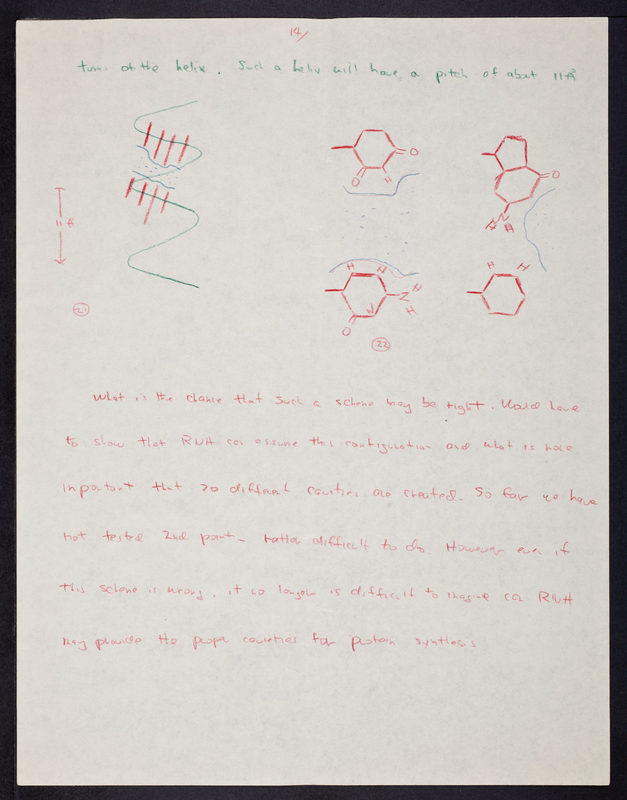 14/
turns of the helix. Such a helix will have a pitch of about 11 Å
O
O
H
O
N
H
H
11 Å
H
H
H
H
N
H
N
O
H
21
22
What is the chance that such a scheme may be right. Would have
to show that RNA can assume this configuration and what is more
important that 20 different cavities are created. So far we have
not tested 2nd point - rather difficult to do However even if
this scheme is wrong, it no longer is difficult to imagine RNA
may provide the proper cavities for protein synthesis